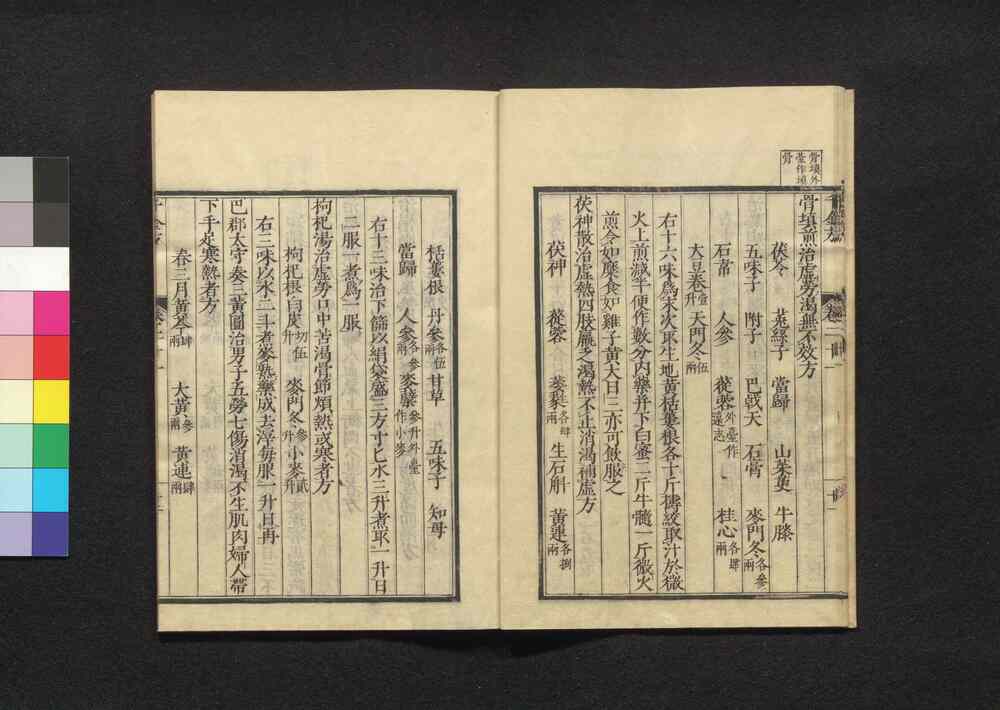 骨塡外
臺作塡
骨
骨填煎治虛勞渴無不效方
茯苓 菟絲子 當歸 山茱萸 牛膝
五味子 附子 巴戟天 石膏 麥門冬各叁兩
石韋 人參 蓯蓉外臺作遠志 桂心各肆兩
大豆卷壹升 天門冬伍兩
右十六味爲末次取生地黃栝蔞根各十斤擣絞取汁於微
火上煎減半便作數分內藥幷下白蜜二斤牛髓一斤微火
煎令如糜食如雞子黃大日三亦可飮服之
茯神散治虛熱四肢羸乏渴熱不止消渴補虛方
茯神 蓯蓉 葳蕤各肆兩 生石斛 黃連各捌兩
栝蔞根 丹參各伍兩 甘草 五味子 知母
當歸 人參各叁兩 麥蘗叁升外臺作小麥
右十三味治下篩以絹袋盛三方寸匕水三升煮取一升日
二服一煮爲一服
枸杞湯治虛勞口中苦渴骨節煩熱或寒者方
枸杞根白皮切伍升 麥門冬叁升 小麥貳升
右三味以水二斗煮麥熟藥成去滓每服一升日再
巴郡太守奏三黃圓治男子五勞七傷消渴不生肌肉婦人帶
下手足寒熱者方
春三月黃芩肆兩 大黃叁兩 黃連肆兩